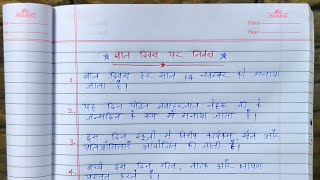 बाल दिवस पर निबंध
1. बाल दिवस हर साल 14 नवम्बर को मनाया
जाता है।
2. यह दिन पंडित जवाहरलाल नेहरू जी के
जन्मदिन के रूप में मनाया जाता है।
3. इस दिन स्कूलों में विशेष कार्यक्रम, खेल और
प्रतियोगिताएँ आयोजित की जाती हैं।
4. बच्चे इस दिन गीत, नाटक और भाषण
प्रस्तुत करते हैं।